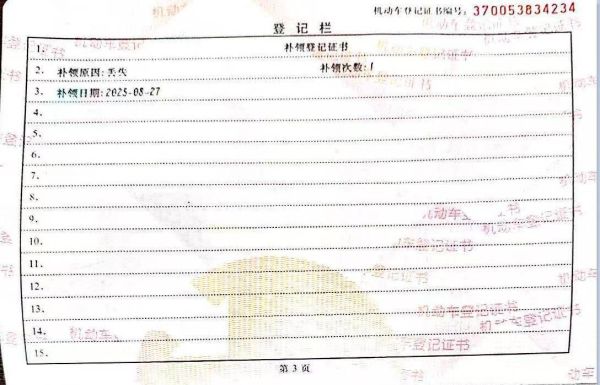 机动车登记证书编号: 370053834234
登记栏
1. 补领登记证书
2. 补领原因:丢失 补领次数:1
3. 补领日期:2025-08-27
4.
5.
6.
7.
8.
9.
10.
11.
12.
13.
14.
15.
第 3 页